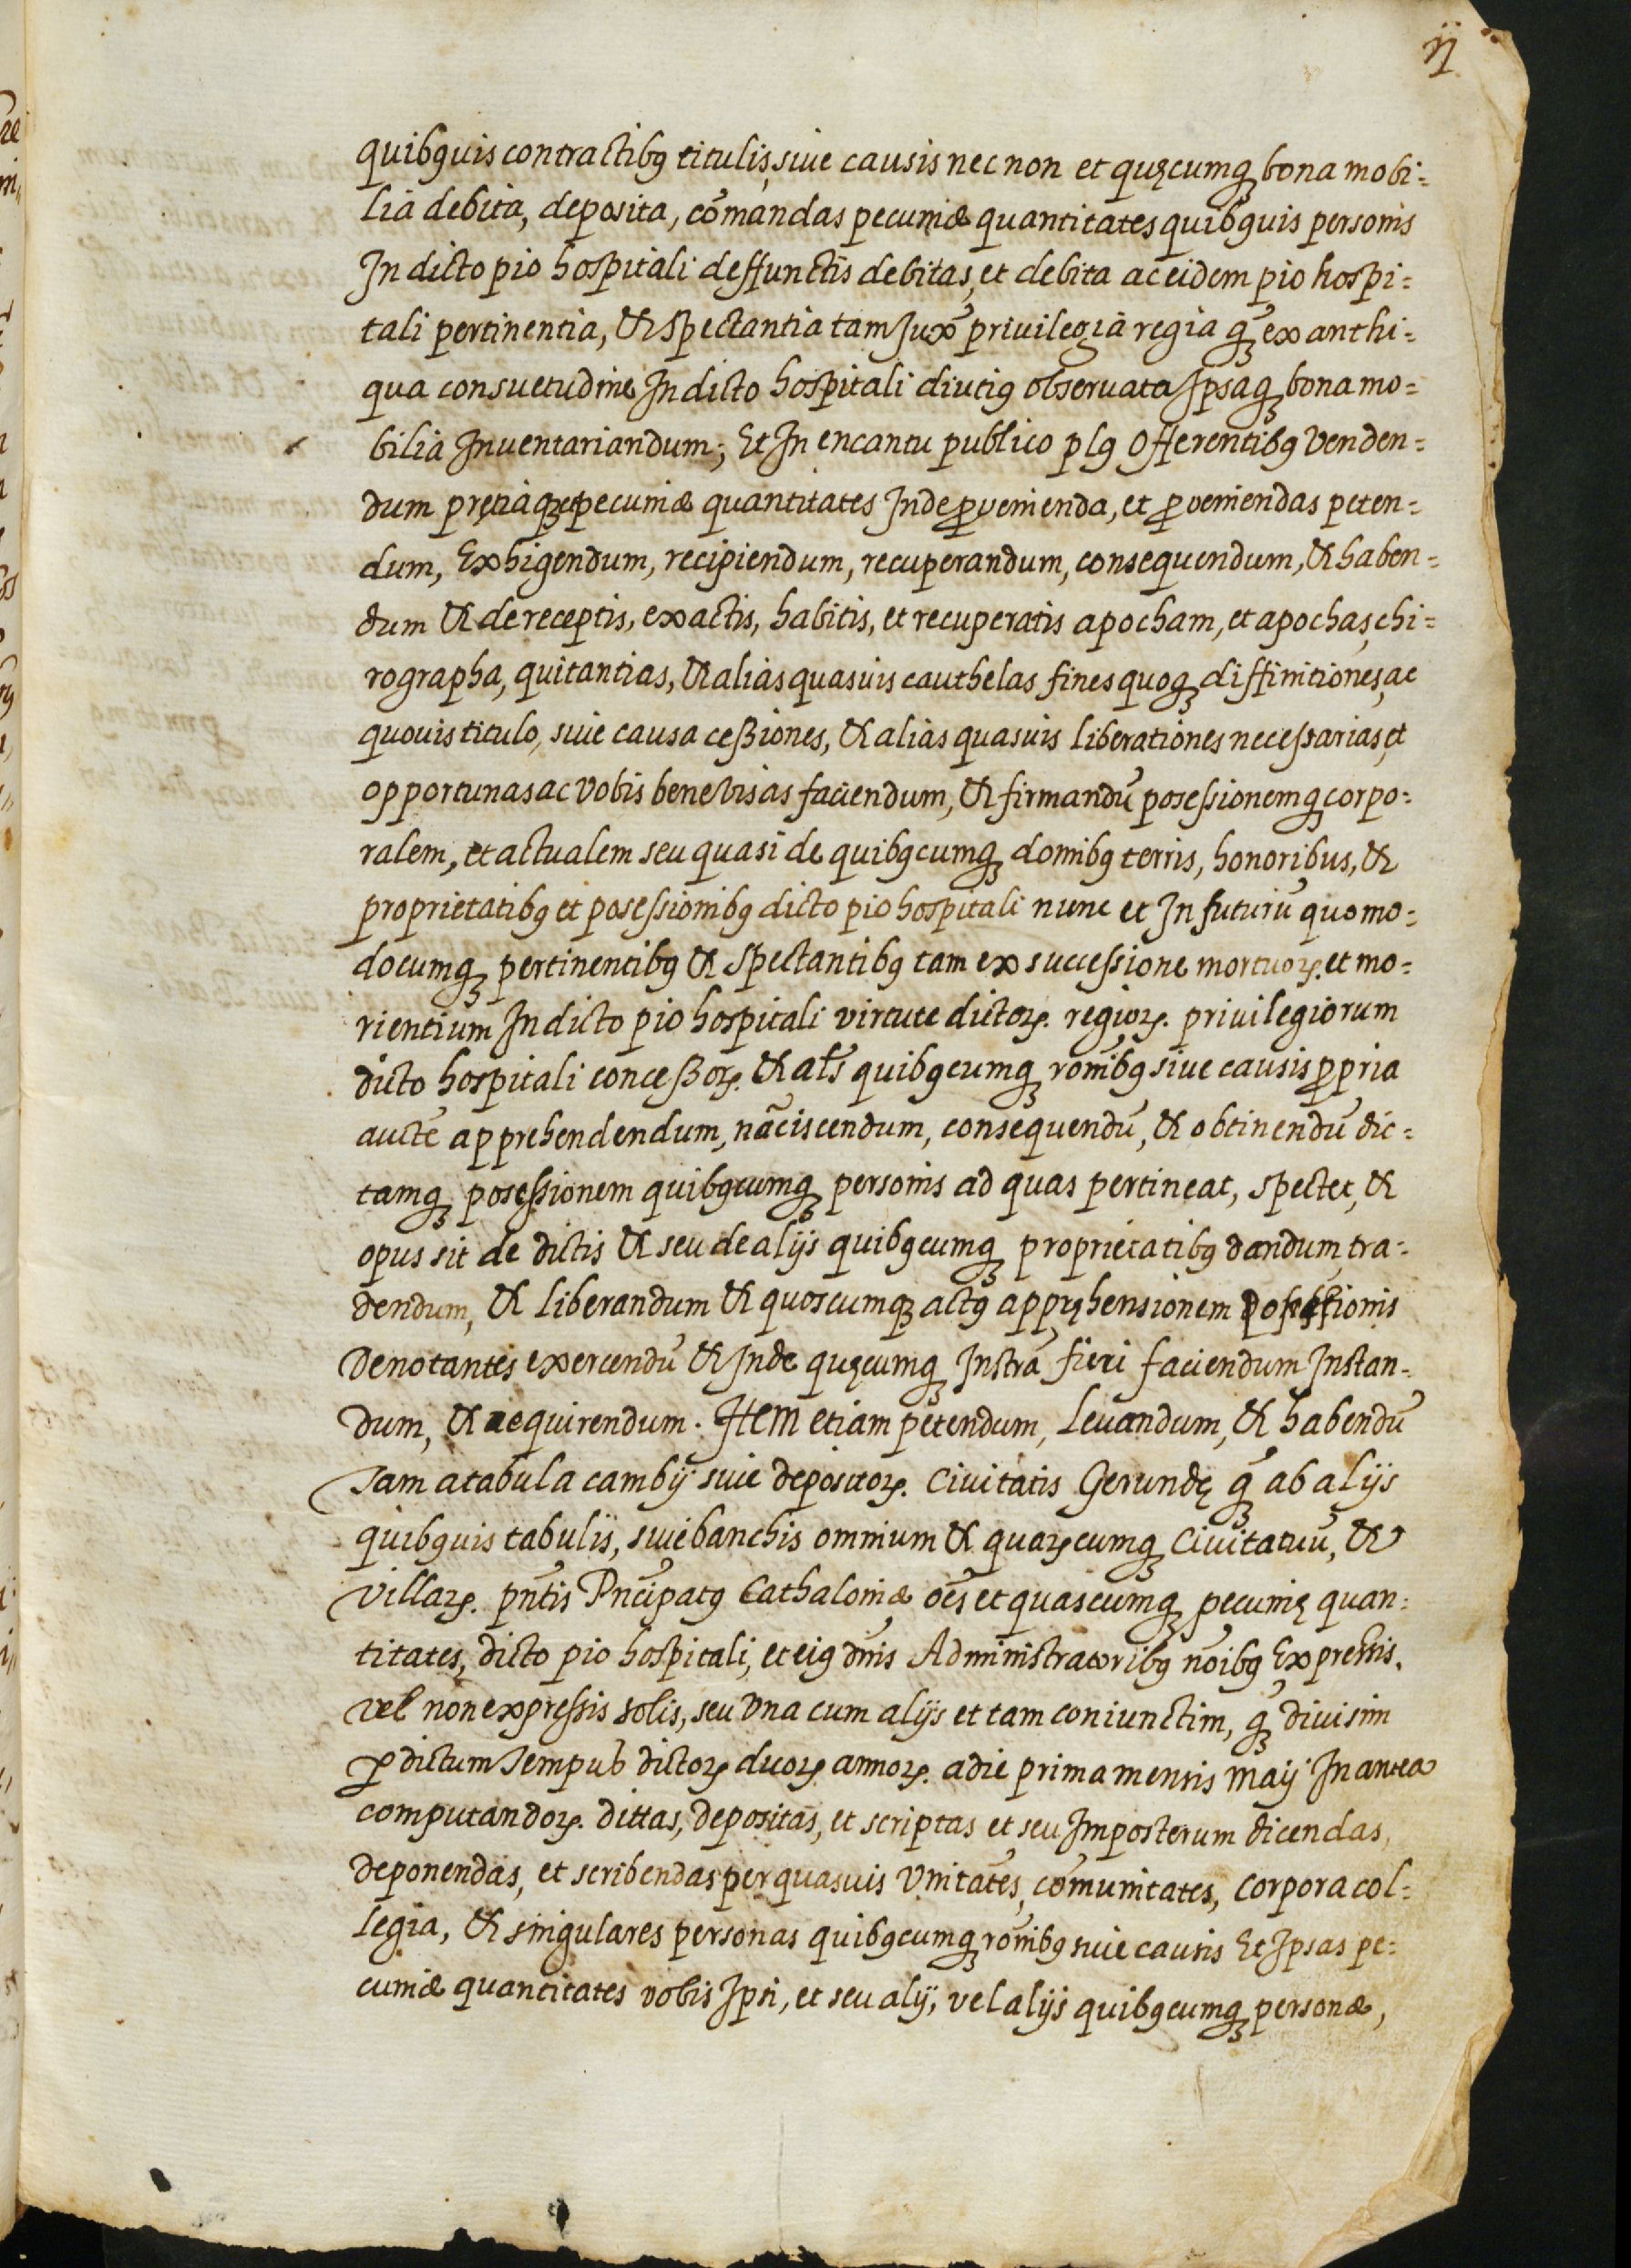 ij
quibꝰuis contractibꝰ titulis, siue causis nec non et quęcumqꝫ bona mobi=
lia debita, deposita, comãndas pecuniæ quantitates quibꝰuis personis
In dicto pio hospitali deffunctis debitas, et debita ac eidem pio hospi=
tali pertinentia, & spectantia tam Juxᵃ̃ priuilegia regia qꝫ̃ ex anthi=
qua consuetudine In dicto hospitali diutiꝰ obseruata Ipsaqꝫ bona mo=
bilia Inuentariandum; Et In encantu publico plꝰ offerentibꝰ Venden=
dum prętiaqꝫ et pecuniæ quantitates Inde ꝓuenienda, et ꝓueniendas peten=
dum, Exhigendum, recipiendum, recuperandum, consequendum, & haben=
dum & de receptis, exactis, habitis, et recuperatis apocham, et apochas, chi=
rographa, quitantias, & alias quasuis cauthelas fines quoqꝫ diffinitiones, ac
quouis titulo, siue causa ceßiones, & alias quasuis liberationes necessarias, et
opportunas ac vobis bene visas faciendum, & firmandũ posessionemqꝫ corpo=
ralem, et actualem seu quasi de quibꝰcumqꝫ domibꝰ terris, honoribus, &
proprietatibꝰ et posessionibꝰ dicto pio hospitali nunc et In futurũ quomo=
documqꝫ pertinentibꝰ & spectantibꝰ tam ex successione mortuoꝝ. et mo=
rientium In dicto pio hospitali virtute dictoꝝ. regioꝝ. priuilegiorum
dicto hospitali conceßoꝝ. & al̃s quibꝰcumqꝫ roñibꝰ siue causis ꝓpria
aucte͂ apprehendendum, nãciscendum, consequendũ, & obtinendũ dic=
tamqꝫ posessionem quibꝰcumqꝫ personis ad quas pertineat, spectet, &
opus sit de dictis & seu de alijs quibꝰcumqꝫ proprietatibꝰ dandum, tra=
dendum, & liberandum & quoscumqꝫ actꝰ appręhensionem possessionis
Denotantes exercendũ & Inde quęcumqꝫ Instrã fieri faciendum Instan=
dum, & requirendum. Item etiam petendum, Leuandum, & habendũ
Tam a tabula cambij siue depositoꝝ. Ciuitatis Gerundę qꝫ̃ ab alijs
quibꝰuis tabulis, siue banchis omnium & quaꝝcumqꝫ Ciuitatuũ, &
Villaꝝ. pñtis Prĩcipatꝰ Cathaloniæ oẽs et quascumqꝫ pecunię quan=
titates, dicto pio hospitali, et eiꝰ dñis Administratoribꝰ noĩbꝰ Expressis,
vel non expressis solis, seu Vna cum alijs et tam coniunctim, qꝫ̃ diuisim
ꝑ dictum Tempus dictoꝝ duoꝝ annoꝝ. a die prima mensis Maij In antea
computandoꝝ. dittas, depositas, et scriptas et seu Imposterum dicendas,
Deponendas, et scribendas per quasuis Vnitates, cõmunitates, Corpora col=
legia, & singulares personas quibꝰcumqꝫ roñibꝰ siue causis Et Ipsas pe=
cuniæ quantitates vobis Ipsi, et seu alij, vel alijs quibꝰcumqꝫ personæ,